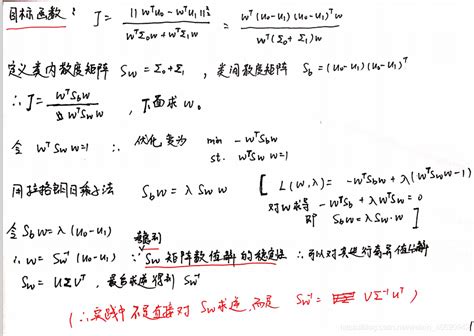 目标函数: J = ||wᵀu₀ - wᵀu₁||₂² / (wᵀΣ₀w + wᵀΣ₁w) = wᵀ(u₀-u₁)(u₀-u₁)ᵀw / (wᵀ(Σ₀+Σ₁)w)
定义类内散度矩阵 Sw = Σ₀+Σ₁, 类间散度矩阵 Sb = (u₀-u₁)(u₀-u₁)ᵀ
∴ J = wᵀSbw / wᵀSww, 下面求 w.
令 wᵀSww=1 ∴ 优化变为 min -wᵀSbw
st. wᵀSww=1
用拉格朗日乘子法 Sbw = λSww [ L(w,λ) = -wᵀSbw + λ(wᵀSww-1)
对w求导 -wᵀSb + λwᵀSw = 0
即 Sbw = λSw·w ]
令 Sbw = λ(u₀-u₁)
∴ w = Sw⁻¹(u₀-u₁) ∵ 考虑到 Sw 矩阵数值解的稳定性 ∴ 可以对其进行奇异值分解
Sw = UΣVᵀ, 最后求得到 Sw⁻¹
(∴ 实践中不是直接对 Sw求逆,而是 Sw⁻¹ = VΣ⁻¹Uᵀ)